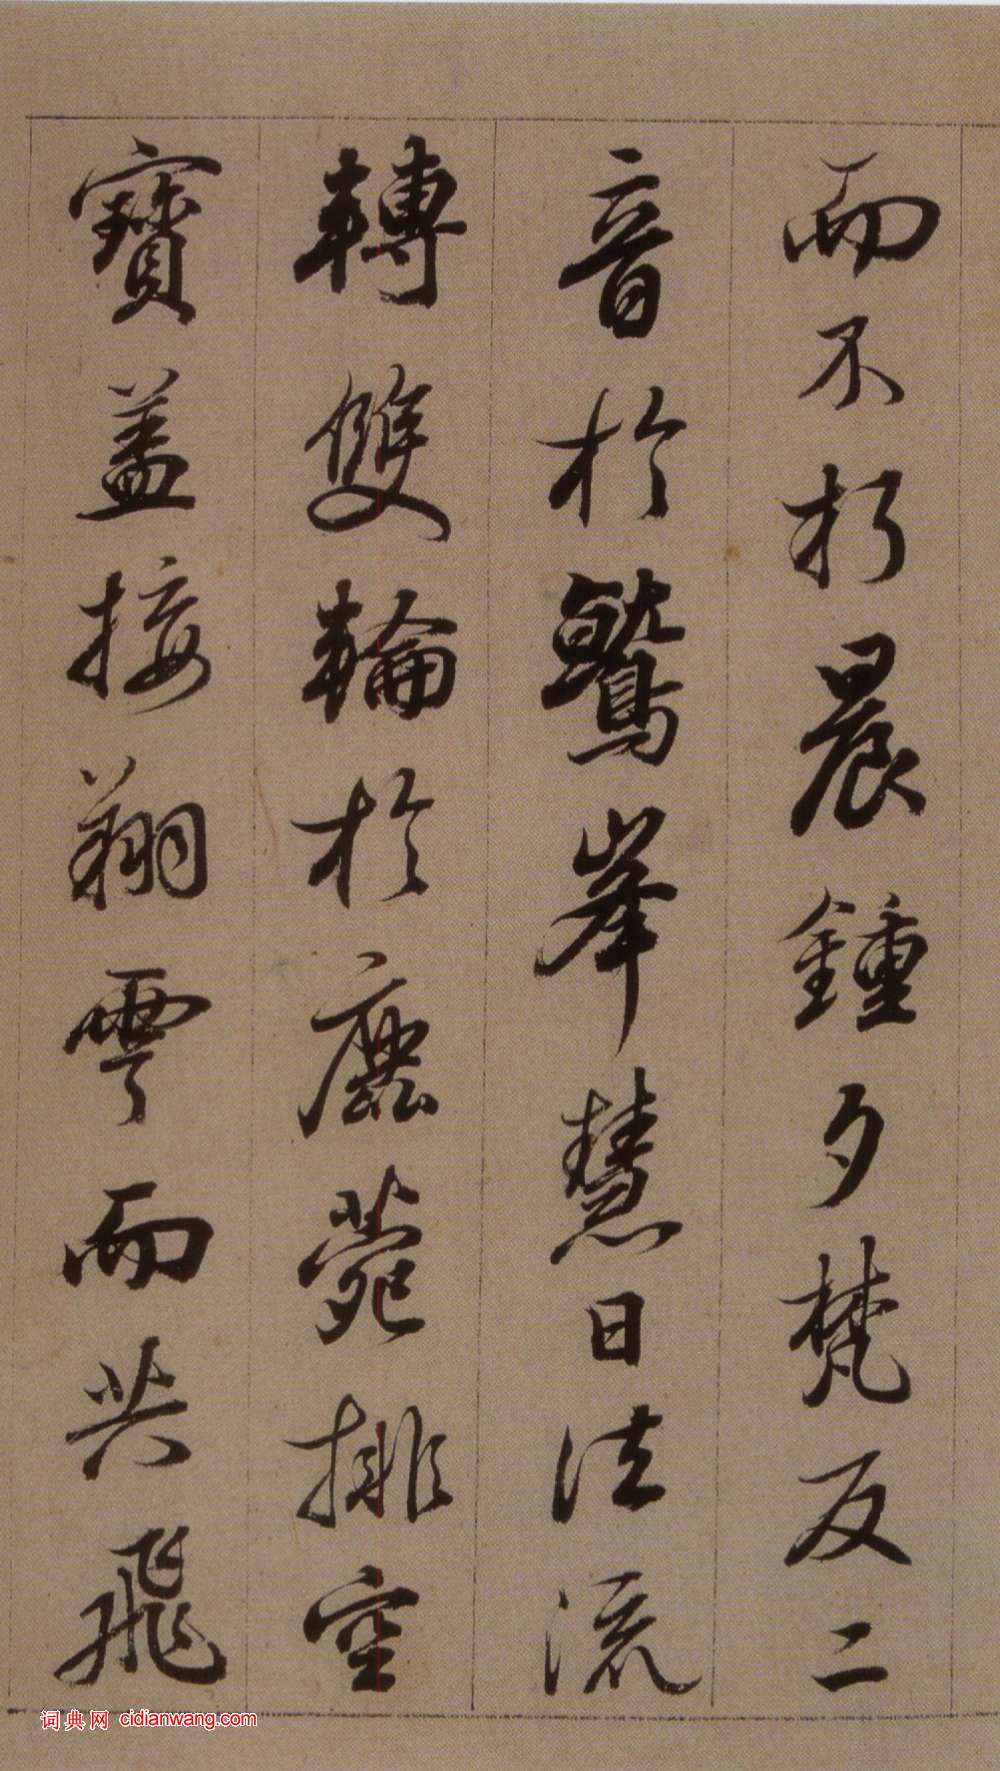 而不朽晨鐘夕梵反二
音於鷲峯慧日法流
轉雙輪於鹿菀排空
寶盖接翔雲而共飛
词典网 cidianwang.com